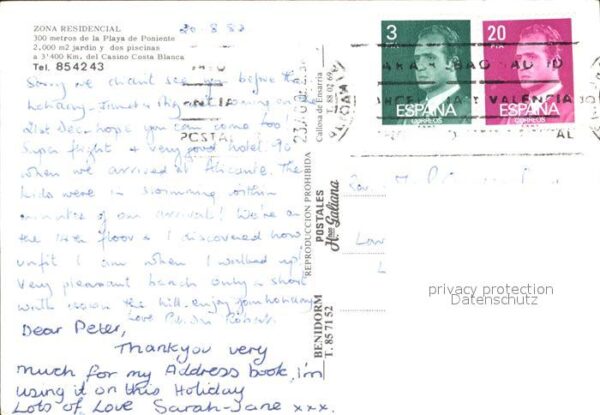 ZONA RESIDENCIAL
300 metros de la Playa de Poniente
2,000 m2 jardin y dos piscinas
a 3'400 Km. del Casino Costa Blanca
Tel. 854243
20.8.83
Sorry we didn't see you before the
holiday -
21st Dec. hope you can come too
Super flight & very good hotel. 90°
when we arrived at Alicante. The
kids were in swimming within
minutes of our arrival! We're on
the 14th floor & I discovered how
unfit I am when I walked up!
Very pleasant beach only a short
walk down the hill. enjoy your holiday
Love Robert.
Dear Peter,
Thankyou very
much for my Address book, i'm
using it on this Holiday
Lots of Love Sarah-Jane xxx.
Callosa de Ensarria
T. 88 02 69
REPRODUCCION PROHIBIDA
POSTALES
Hnos Galiana
BENIDORM
T. 85 71 52
3
PTA
ESPAÑA
CORREOS
20
PTA
ESPAÑA
CORREOS
VALENCIA
POSTAL
privacy protection
Datenschutz